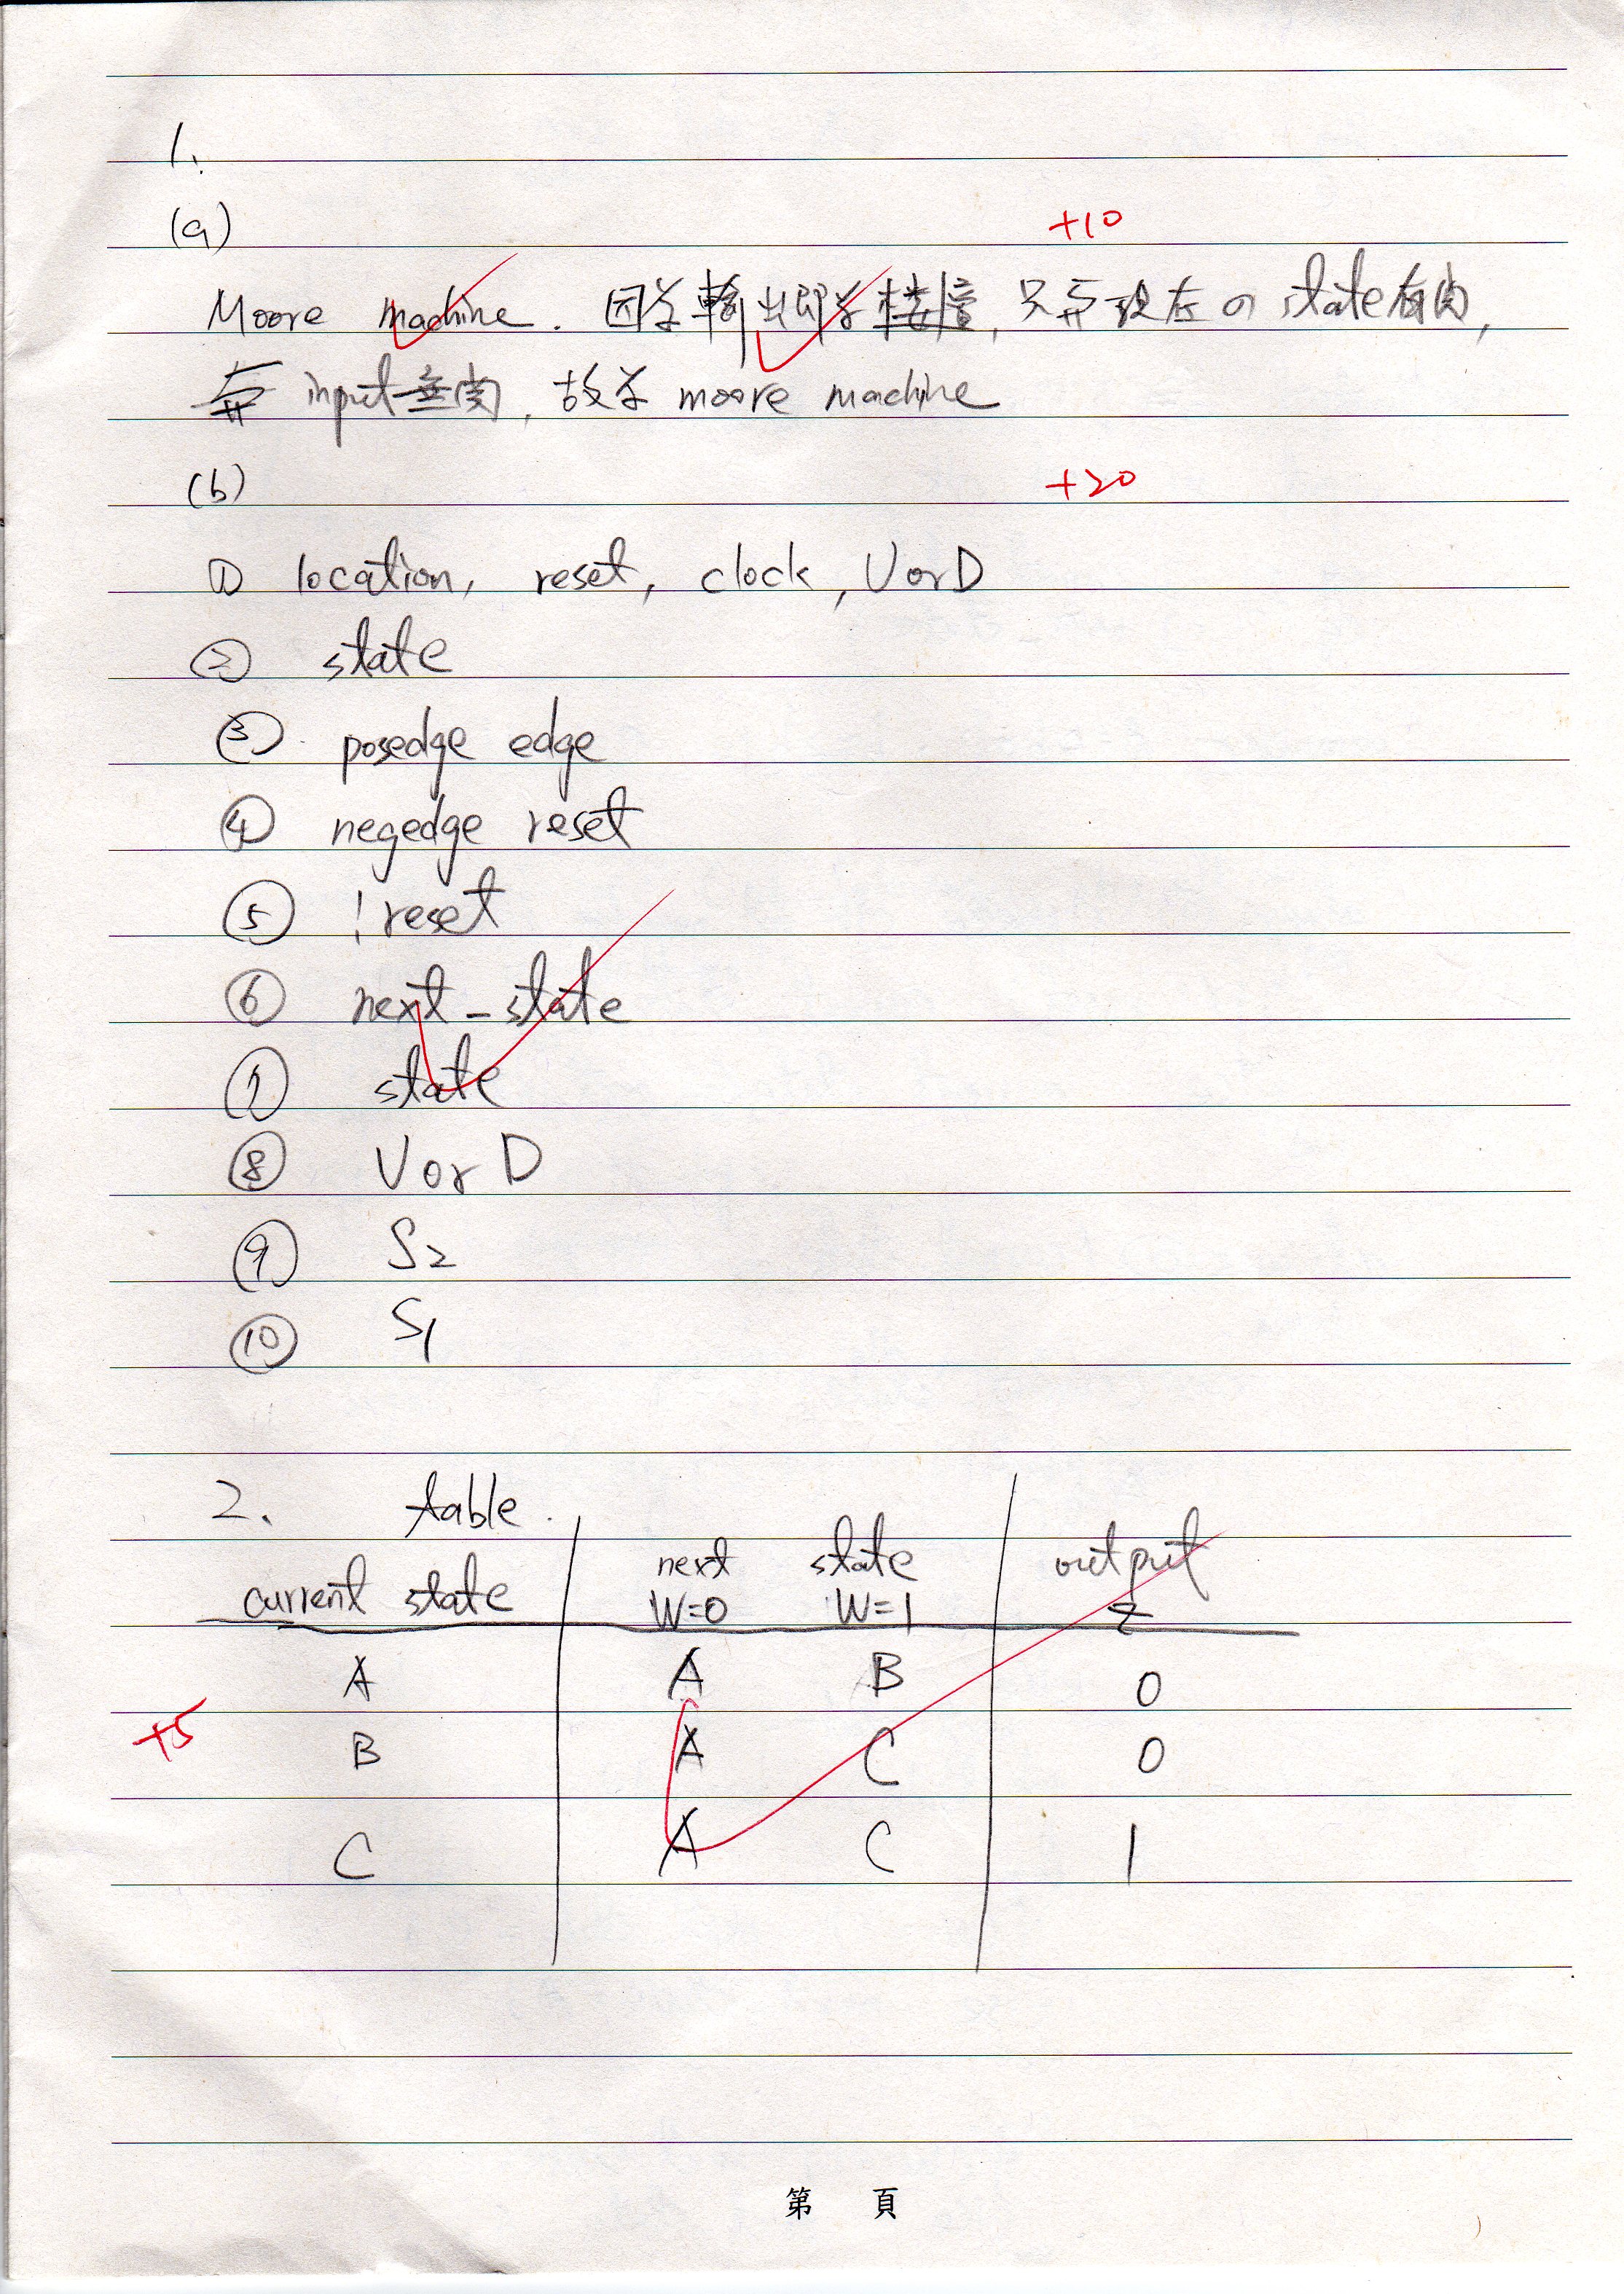 1.
(a)
+10
Moore machine. 因为輸出即为楼層, 只与現在の state 有関,
与 input 無関, 故为 moore machine
(b)
+20
① location, reset, clock, UorD
② state
③ posedge edge
④ negedge reset
⑤ !reset
⑥ next_state
⑦ state
⑧ UorD
⑨ S2
⑩ S1
2. table.
next state output
current state W=0 W=1 z
A A B 0
+5
B A C 0
C A C 1
第 頁